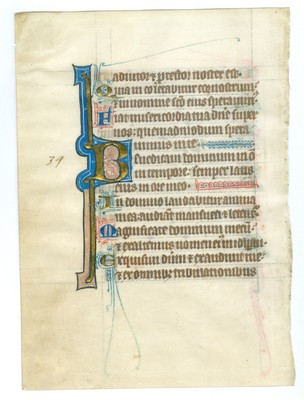 adiutor et ptector noster est
Quia in eo letabitur cor nostrum
in nomine sco eius sperauim
Fiat misericordia tua dne super
nos: quemadmodum spera
uimus in te
Benedicam dominum in o
tempore: semper laus
eius in ore meo
In domino laudabitur anima
mea audiant mansueti et letent
Magnificate dominum mecu
et exaltemus nomen ei in idipsu
Exquisiui dnm et exaudiuit me
et ex omnibus tribulationibus